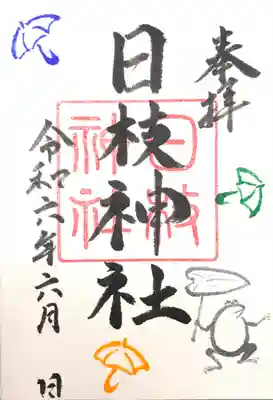 奉拝
日枝神社
日枝神社
令和六年六月 日